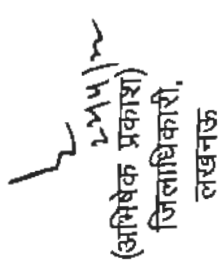 (अभिषेक प्रकाश)
जिलाधिकारी,
लखनऊ